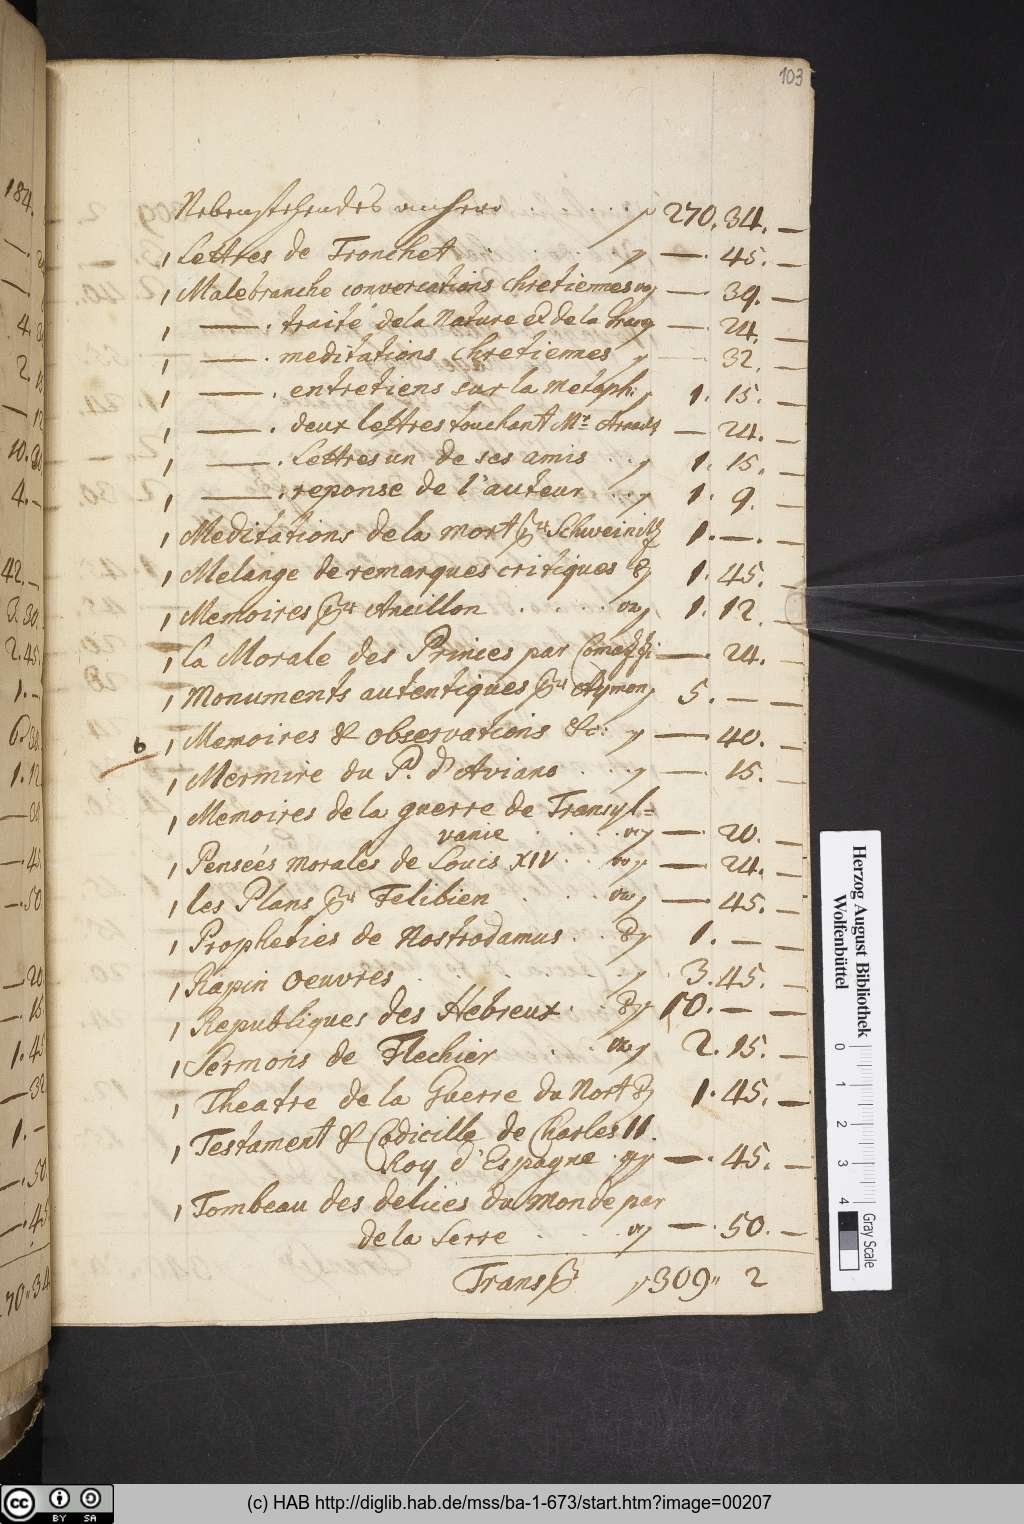 103
Nebenstehendes anhero . . . . . 270. 34. —
1 Lettres de Tronchet . . . . — . 45. —
1 Malebranche conversations chretiennes — 39. —
1 — . traité de la Nature et de la — 24. —
1 — . meditations chretiennes — 32. —
1 — . entretiens sur la metaph: 1. 15. —
1 — . deux lettres touchant Mr. Arnauld — 24. —
1 — . Lettres un de ses amis . . 1. 15. —
1 — . reponse de l'auteur . . 1. 9. —
1 Meditations de la mort Schweinitz 1. — . —
1 Melange de remarques critiques 1. 45. —
1 Memoires Ancillon . . . . . 1. 12. —
1 la Morale des Princes par Comazzi — 24. —
1 Monuments autentiques Aymon 5. — —
6 1 Memoires & observations &c: — 40. —
1 Mermire du P. d'Aviano . . . — 15. —
1 Memoires de la guerre de Transyl=
vanie . . . . — 20. —
1 Pensées morales de Louis XIV . . — 24. —
1 les Plans Felibien . . . — . 45. —
1 Propheties de Nostrodamus . . 1. — —
1 Rapin Oeuvres . . . . . 3. 45. —
1 Republiques des Hebreux . 10. — —
1 Sermons de Flechier . . 2. 15. —
1 Theatre de la Guerre du Nort 1. 45. —
1 Testament & Codicille de Charles II.
Roy d'Espagne . — . 45. —
1 Tombeau des delices du monde par
de la Serre . . . . — . 50. —
309 " 2
Herzog August Bibliothek
Wolfenbüttel
0 1 2 3 4
Gray Scale
CC BY SA
(c) HAB http://diglib.hab.de/mss/ba-1-673/start.htm?image=00207